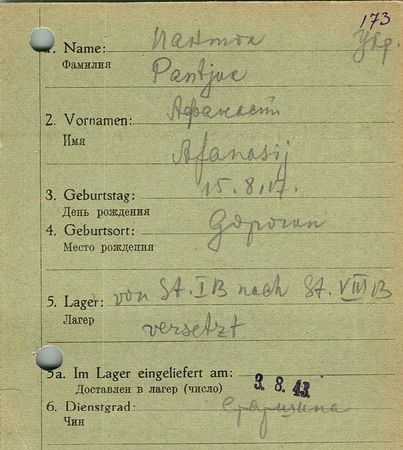 173
1. Name: Укр.
Фамилия
Pantjux
2. Vornamen: Афанасий
Имя
Afanasij
3. Geburtstag: 15.8.17.
День рождения
4. Geburtsort:
Место рождения
5. Lager: von St. IB nach St. VIII B
Лагер versetzt
5a. Im Lager eingeliefert am: 3. 8. 43
Доставлен в лагер (число)
6. Dienstgrad: Старшина
Чин